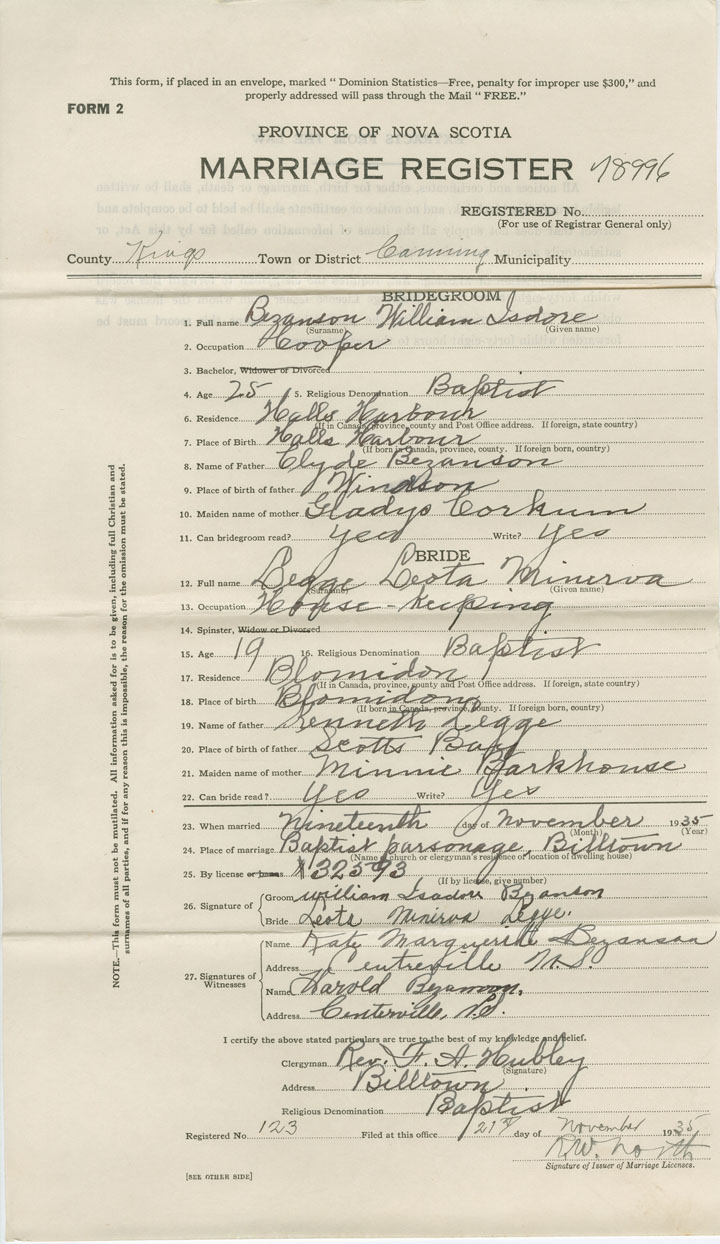 This form, if placed in an envelope, marked " Dominion Statistics—Free, penalty for improper use $300," and
properly addressed will pass through the Mail " FREE."
FORM 2
PROVINCE OF NOVA SCOTIA
MARRIAGE REGISTER 78996
REGISTERED No.
(For use of Registrar General only)
County Kings Town or District Canning Municipality
BRIDEGROOM
1. Full name Bezanson William Isdore
(Surname) (Given name)
2. Occupation Cooper
3. Bachelor, Widower or Divorced
4. Age 25 5. Religious Denomination Baptist
6. Residence Halls Harbour
(If in Canada, province, county and Post Office address. If foreign, state country)
7. Place of Birth Halls Harbour
(If born in Canada, province, county. If foreign born, country)
8. Name of Father Clyde Bezanson
9. Place of birth of father Windsor
10. Maiden name of mother Gladys Corkum
11. Can bridegroom read? Yes Write? Yes
BRIDE
12. Full name Legge Leota Minerva
(Surname) (Given name)
13. Occupation House-Keeping
14. Spinster, Widow or Divorced
15. Age 19 16. Religious Denomination Baptist
17. Residence Blomidon
(If in Canada, province, county and Post Office address. If foreign, state country)
18. Place of birth Blomidon
(If born in Canada, province, county. If foreign born, country)
19. Name of father Kenneth Legge
20. Place of birth of father Scotts Bay
21. Maiden name of mother Minnie Barkhouse
22. Can bride read? Yes Write? Yes
23. When married Nineteenth day of November 1935
(Month) (Year)
24. Place of marriage Baptist parsonage, Billtown
(Name of church or clergyman's residence or location of dwelling house)
25. By license or banns #32593
(If by license, give number)
26. Signature of Groom William Isadore Bezanson
Bride Leota Minerva Legge.
27. Signatures of Witnesses
Name Kate Marguerite Bezanson
Address Centreville N.S.
Name Harold Bezanson,
Address Centerville, N.S.
I certify the above stated particulars are true to the best of my knowledge and belief.
Clergyman Rev. F. A. Hubley
(Signature)
Address Billtown
Religious Denomination Baptist
Registered No. 123 Filed at this office 21st day of November 1935
R.W. North
Signature of Issuer of Marriage Licenses.
[SEE OTHER SIDE]
NOTE.—This form must not be mutilated. All information asked for is to be given, including full Christian and
surnames of all parties, and if for any reason this is impossible, the reason for the omission must be stated.